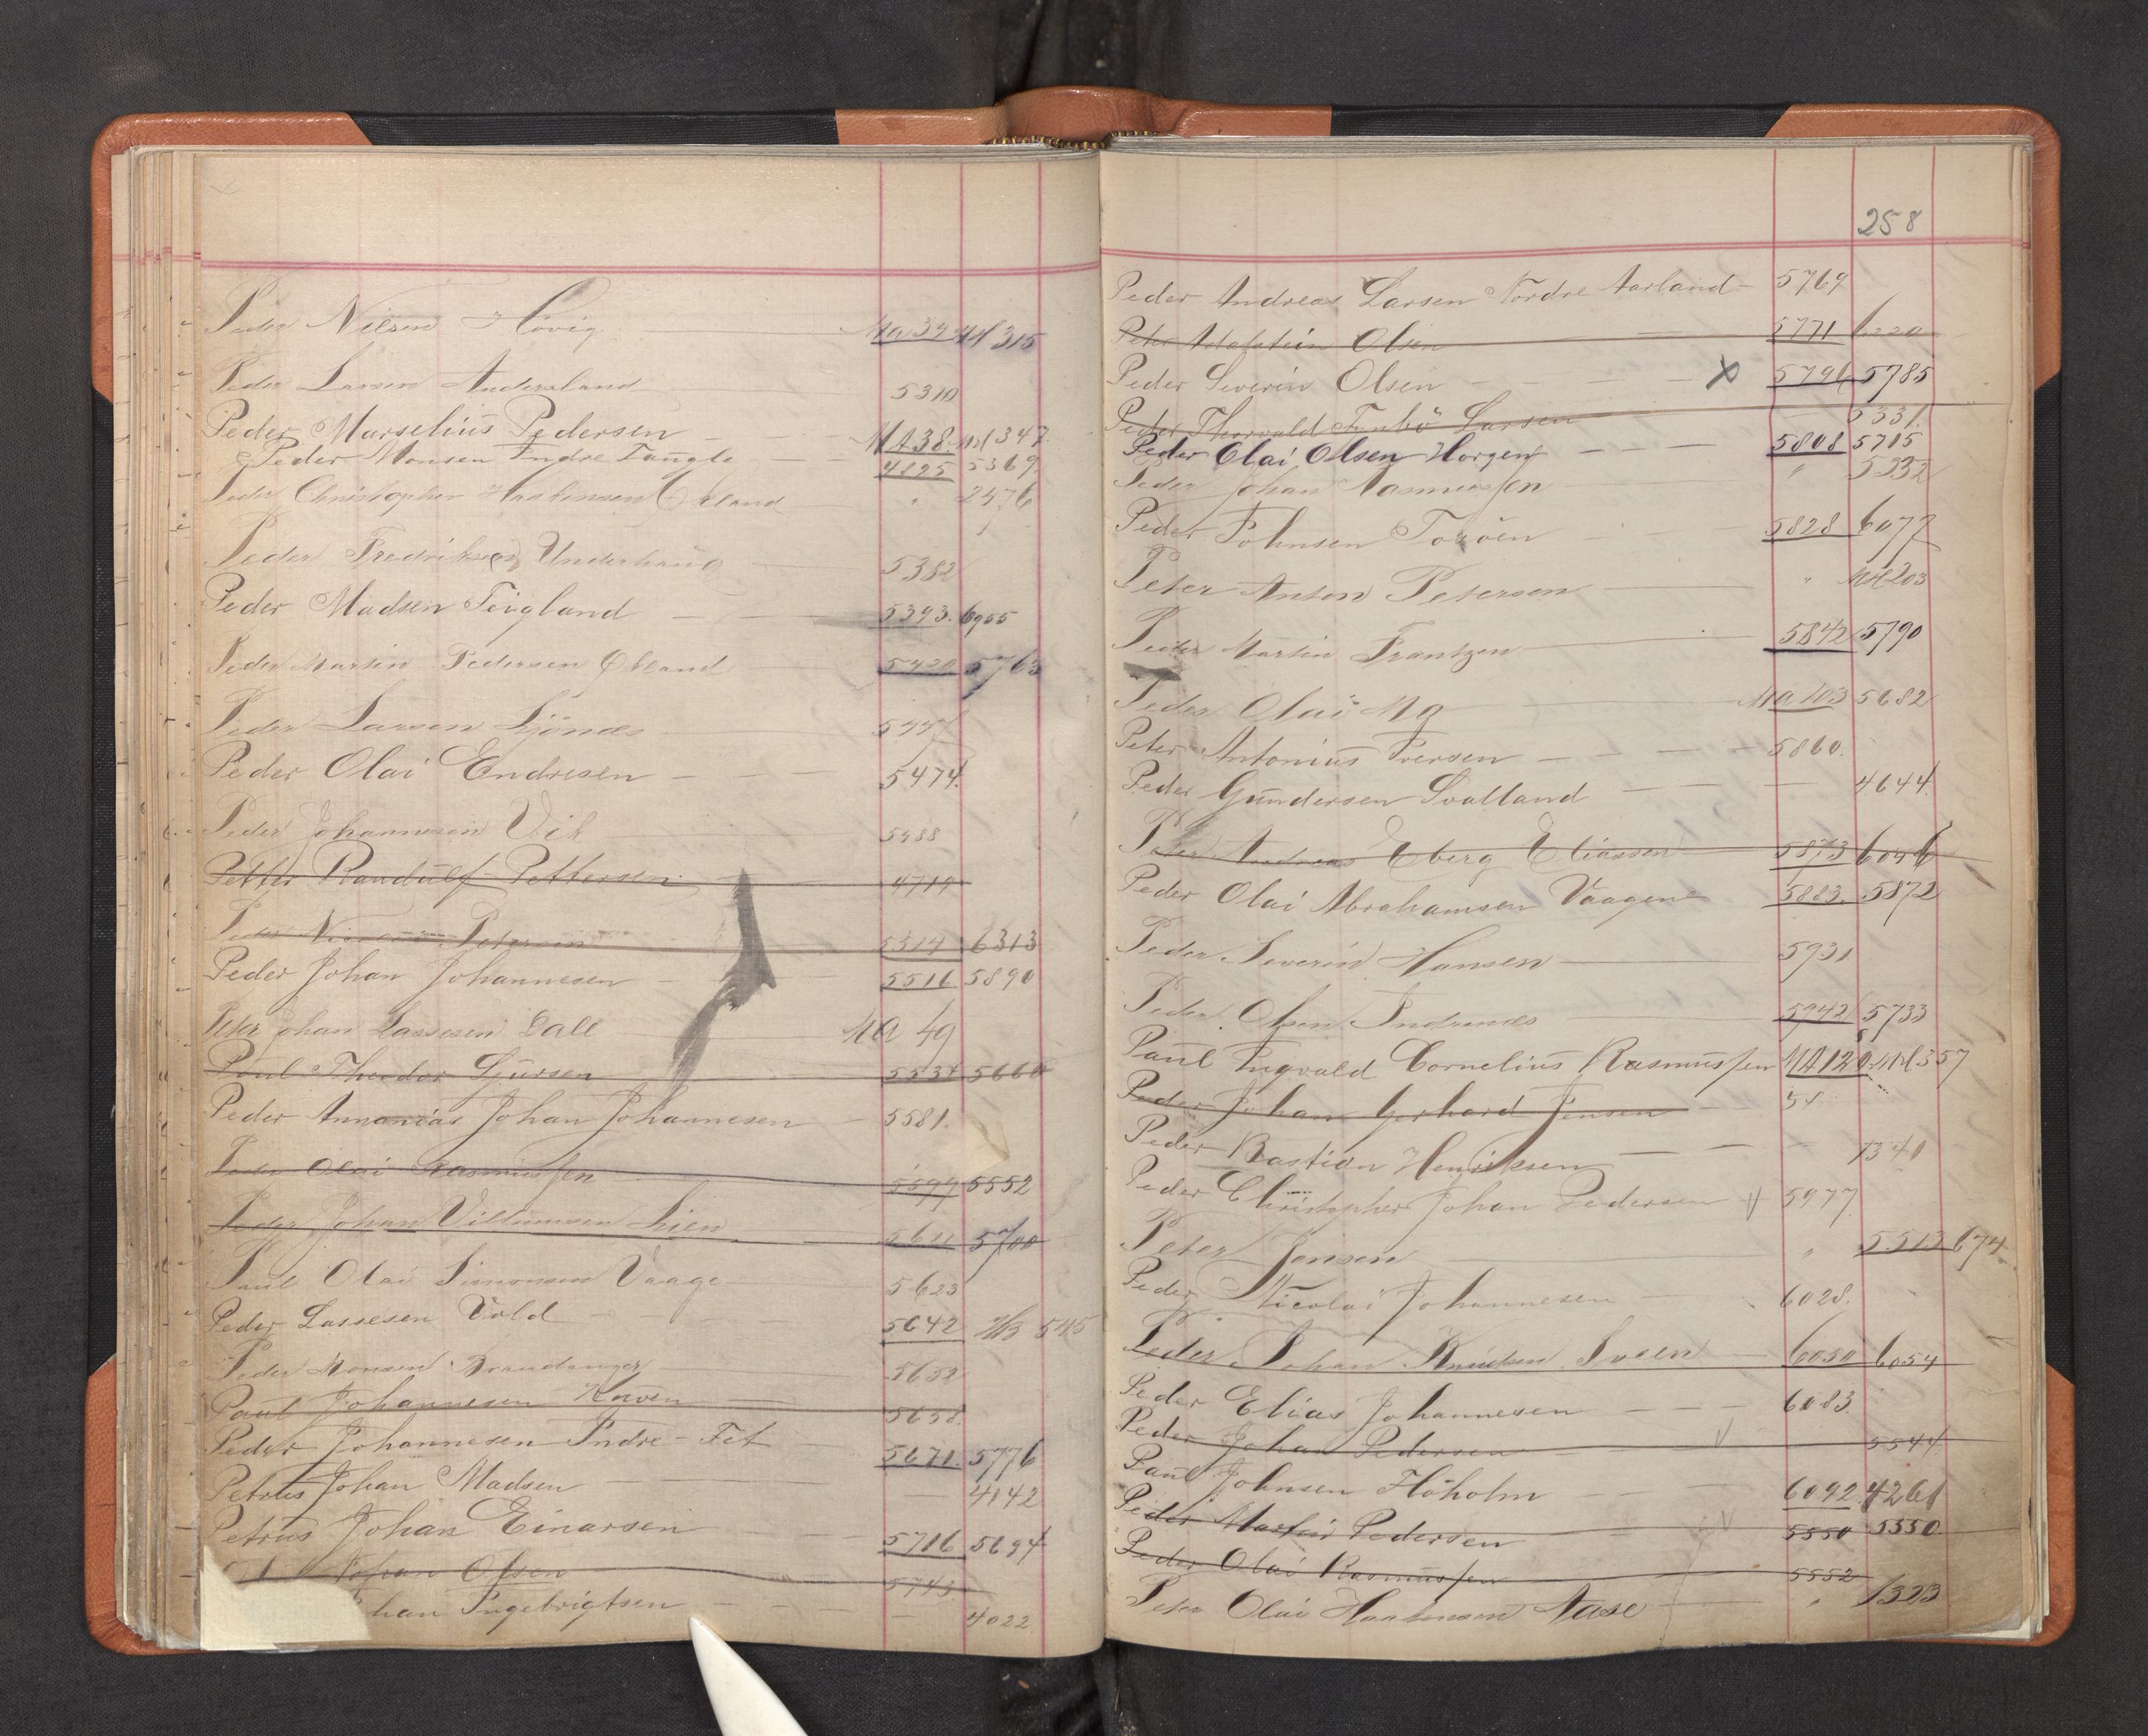 Peder Nilsen Hövig Ma 39 Md 315
Peder Larsen Andersland 5310
Peder Marselius Pedersen MA 38. Md 347
Peder Monsen Indre Tangle 4895 5369
Peder Christopher Haakensen Ekland " 2476
Peder Fredriksen Underhaug 5382
Peder Madsen Teigland 5393. 6955
Peder Martin Pedersen Økland 5420 5763
Peder Larsen
Peder Olai Endresen 5474.
Peder Johannesen Vik 5488
Petter Randulf Pettersen 4719
Peder Petersen 5514 6313
Peder Johan Johannesen 5516 5890
Peter Johan Lassesen Dale MA 49
Paul Theodor Sjursen 5534 5660
Peder Annanias Johan Johannesen 5581.
Peder Olai Rasmussen 5597 5552
Peder Johan Villumsen Lien 5611 5700
Paul Olai Simonsen Vaage 5623
Peder Lassesen Vold 5642 545
Peder Monsen Brandanger 5652
Paul Johannesen 5658.
Peder Johannesen Indre-Fet 5671. 5776
Petrus Johan Madsen 4142
Petrus Johan Einarsen 5716 5694
Johan Olsen 5743.
Ingebrigtsen 4022
258
Peder Andreas Larsen Nordre Aarland 5769
Peter Adolfstein Olsen 5771 6220
Peder Severin Olsen x 5796 5785
Peder Thorvald Larsen 5331.
Peder Olai Olsen Horgen 5808 5715
Peder Johan Rasmussen " 5332
Peder Johnsen Toröen 5828 6077
Peter Anton Petersen " Md 203
Peder Martin Frantzen 5842 5790
Peder Olai Ma 103 5682
Peter Antonius Iversen 5860.
Peder Gundersen Svalland 4644.
Peder Andreas Eberg Eliassen 5873 6046
Peder Olai Abrahamsen Vaagenes 5883. 5872
Peder Severin Hansen 5931
Peder Olsen Indrenes 5942 5733
Paul Ingvald Cornelius Rasmussen MA 120 Md 357
Peder Johan Gerhard Jensen
Peder Bastian Henriksen 1340
Peder Christopher Johan Pedersen 5977.
Peter Jensen " 5513 674
Peder Nicolai Johannesen 6028.
Peder Johan Knudsen Sveen 6050 6054
Peder Elias Johannesen 6083.
Peder Johan Pedersen 5544
Paul Johnsen Flöholm 6092. 4261
Peder Martin Pedersen 5550 5550
Peder Olai Rasmussen 5552
Peter Olai Haakonsen Aase " 1323